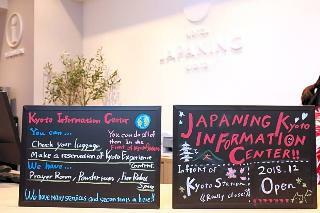 JAPANING
Kyoto Information Center
You can...
You can do all of them in the
Check your luggage
Make a reservation of Kyoto Experience
We have...
Prayer Room, Powder room, Free Video
Space
We have many services and reservations, here!
JAPANING Kyoto
INFORMATION
CENTER!!
In front of
Kyoto Station.
(Really close!)
2018.12
Open